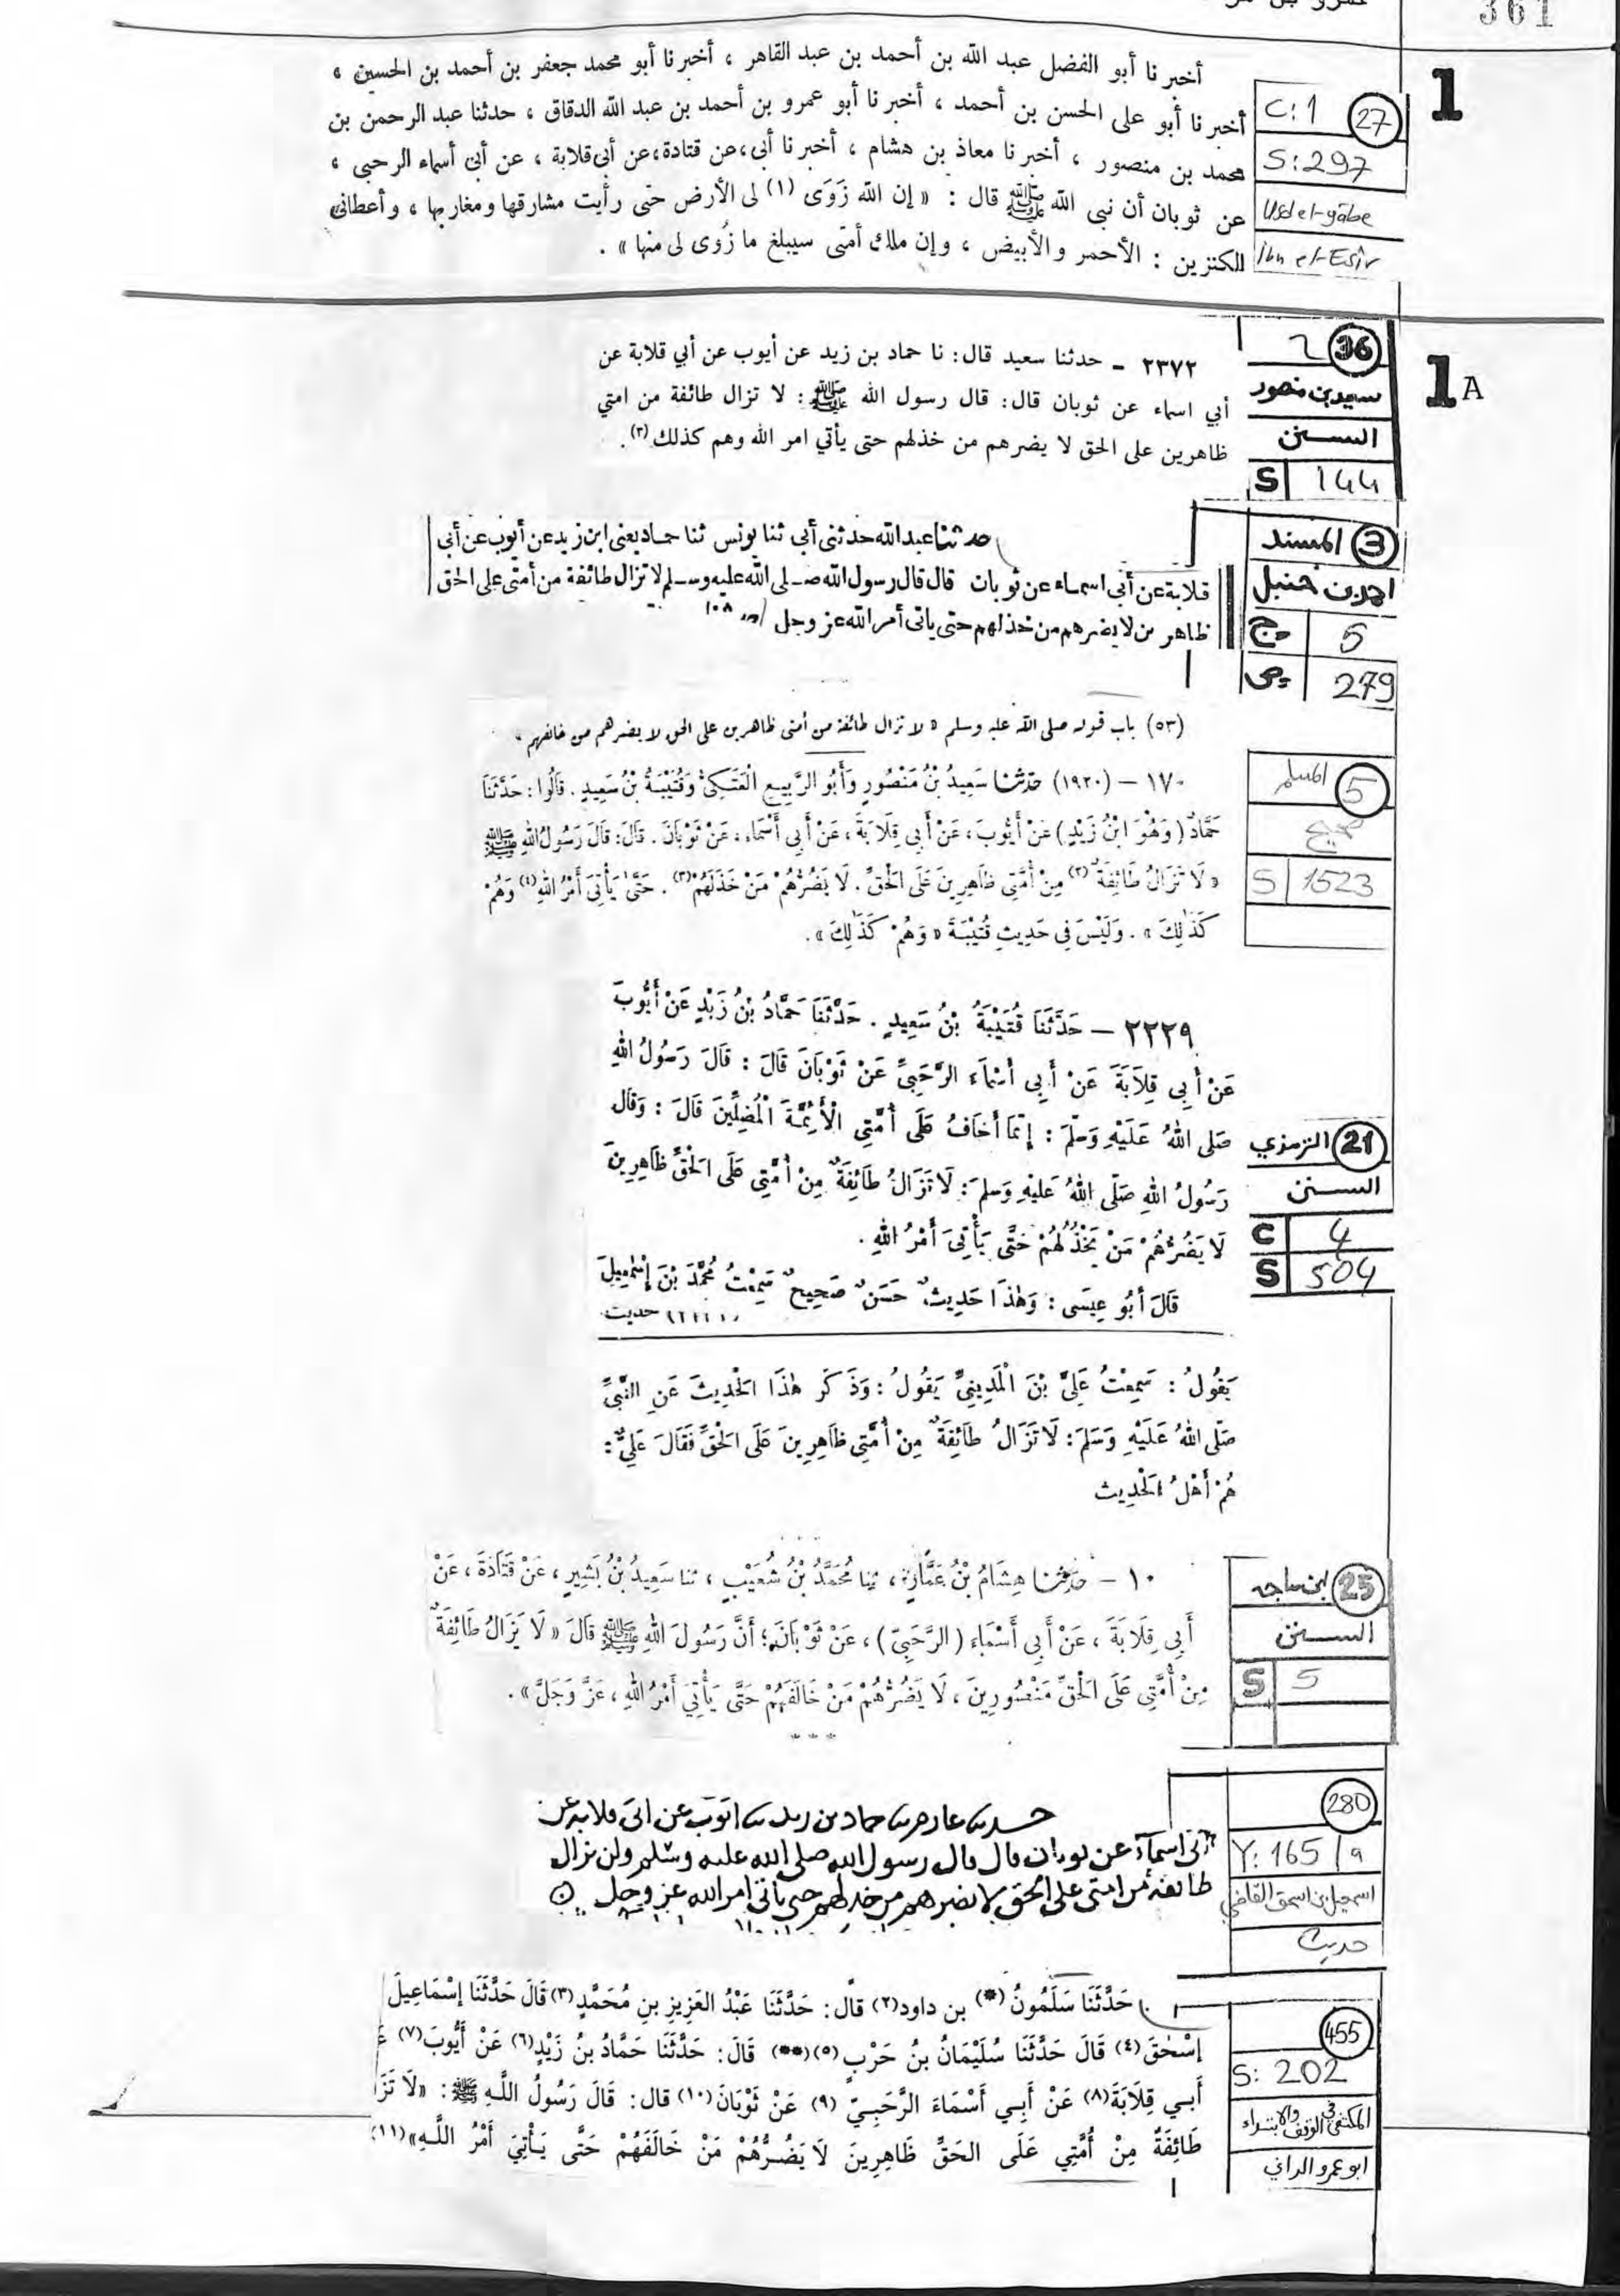 361
1
أخبرنا أبو الفضل عبد الله بن أحمد بن عبد القاهر ، أخبرنا أبو محمد جعفر بن أحمد بن الحسين ،
أخبرنا أبو على الحسن بن أحمد ، أخبرنا أبو عمرو بن أحمد بن عبد الله الدقاق ، حدثنا عبد الرحمن بن
محمد بن منصور ، أخبرنا معاذ بن هشام ، أخبرنا أبى ، عن قتادة ، عن أبى قلابة ، عن أبى أسماء الرحبى ،
عن ثوبان أن نبى الله ﷺ قال : « إن الله زَوَى (١) لى الأرض حتى رأيت مشارقها ومغاربها ، وأعطانى
الكنزين : الأحمر والأبيض ، وإن ملك أمتى سيبلغ ما زُوى لى منها » .
C:1 27
S:297
Usd el-gâbe
Ibn el-Esîr
1A
٢٣٧٢ - حدثنا سعيد قال: نا حماد بن زيد عن أيوب عن أبي قلابة عن
أبي اسماء عن ثوبان قال: قال رسول الله ﷺ: لا تزال طائفة من امتي
ظاهرين على الحق لا يضرهم من خذلهم حتى يأتي امر الله وهم كذلك (٣).
36
سعيد بن منصور
السنن
S 144
حدثنا عبد الله حدثنى أبى ثنا يونس ثنا حماد يعنى ابن زيد عن أيوب عن أبى
قلابة عن أبى اسماء عن ثوبان قال قال رسول الله صلى الله عليه وسلم لا تزال طائفة من أمتى على الحق
ظاهرين لا يضرهم من خذلهم حتى يأتى أمر الله عز وجل
3 المسند
احمد بن حنبل
ج 5
ص 279
(٥٣) باب قوله صلى الله عليه وسلم « لا تزال طائفة من أمتى ظاهرين على الحق لا يضرهم من خالفهم »
١٧٠ – (١٩٢٠) حَدَّثَنَا سَعِيدُ بْنُ مَنْصُورٍ وَأَبُو الرَّبِيعِ الْعَتَكِىُّ وَقُتَيْبَةُ بْنُ سَعِيدٍ . قَالُوا : حَدَّثَنَا
حَمَّادٌ ( وَهُوَ ابْنُ زَيْدٍ ) عَنْ أَيُّوبَ ، عَنْ أَبِى قِلَابَةَ ، عَنْ أَبِى أَسْمَاءَ ، عَنْ ثَوْبَانَ . قَالَ : قَالَ رَسُولُ اللهِ ﷺ
« لَا تَزَالُ طَائِفَةٌ (٢) مِنْ أُمَّتِى ظَاهِرِينَ عَلَى الْحَقِّ . لَا يَضُرُّهُمْ مَنْ خَذَلَهُمْ (٣) . حَتَّى يَأْتِىَ أَمْرُ اللهِ (٤) وَهُمْ
كَذَٰلِكَ » . وَلَيْسَ فِى حَدِيثِ قُتَيْبَةَ « وَهُمْ كَذَٰلِكَ » .
5 المسلم
صحيح
S 1523
٢٢٢٩ – حَدَّثَنَا قُتَيْبَةُ بْنُ سَعِيدٍ . حَدَّثَنَا حَمَّادُ بْنُ زَيْدٍ عَنْ أَيُّوبَ
عَنْ أَبِى قِلَابَةَ عَنْ أَبِى أَسْمَاءَ الرَّحَبِىِّ عَنْ ثَوْبَانَ قَالَ : قَالَ رَسُولُ اللهِ
صَلى اللهُ عَلَيْهِ وَسَلَّمَ : إِنَّمَا أَخَافُ عَلَى أُمَّتِى الْأَئِمَّةَ الْمُضِلِّينَ قَالَ : وَقَالَ
رَسُولُ اللهِ صَلَّى اللهُ عَلَيْهِ وَسَلَّمَ : لَا تَزَالُ طَائِفَةٌ مِنْ أُمَّتِى عَلَى الْحَقِّ ظَاهِرِينَ
لَا يَضُرُّهُمْ مَنْ يَخْذُلُهُمْ حَتَّى يَأْتِىَ أَمْرُ اللهِ .
قَالَ أَبُو عِيسَى : وَهٰذَا حَدِيثٌ حَسَنٌ صَحِيحٌ سَمِعْتُ مُحَمَّدَ بْنَ إِسْمٰعِيلَ
حديث
21 الترمذي
السنن
C 4
S 504
يَقُولُ : سَمِعْتُ عَلِىَّ بْنَ الْمَدِينِىِّ يَقُولُ : وَذَكَرَ هٰذَا الْحَدِيثَ عَنِ النَّبِىِّ
صَلى اللهُ عَلَيْهِ وَسَلمَ : لَا تَزَالُ طَائِفَةٌ مِنْ أُمَّتِى ظَاهِرِينَ عَلَى الْحَقِّ فَقَالَ عَلِىٌّ :
هُمْ أَهْلُ الْحَدِيث
١٠ – حَدَّثَنَا هِشَامُ بْنُ عَمَّارٍ ، ثنا مُحَمَّدُ بْنُ شُعَيْبٍ ، ثنا سَعِيدُ بْنُ بَشِيرٍ ، عَنْ قَتَادَةَ ، عَنْ
أَبِى قِلَابَةَ ، عَنْ أَبِى أَسْمَاءَ ( الرَّحَبِىِّ ) ، عَنْ ثَوْبَانَ ؛ أَنَّ رَسُولَ اللهِ ﷺ قَالَ « لَا يَزَالُ طَائِفَةٌ
مِنْ أُمَّتِى عَلَى الْحَقِّ مَنْصُورِينَ ، لَا يَضُرُّهُمْ مَنْ خَالَفَهُمْ حَتَّى يَأْتِىَ أَمْرُ اللهِ ، عَزَّ وَجَلَّ » .
25 ابن ماجه
السنن
S 5
حدثنا عارم حماد بن زيد ايوب عن ابى قلابه عن
ابى اسماء عن ثوبان قال قال رسول الله صلى الله عليه وسلم ولن تزال
طائفة من امتى على الحق لا يضرهم من خذلهم حتى ياتى امر الله عز وجل
280
Y: 165/a
اسمعيل بن اسحق القاضي
حديث
حَدَّثَنَا سَلَمُونُ (*) بن داود(٢) قال: حَدَّثَنَا عَبْدُ العَزِيزِ بنِ مُحَمَّدٍ(٣) قَالَ حَدَّثَنَا إِسْمَاعِيلَ
إِسْحٰقَ(٤) قَالَ حَدَّثَنَا سُلَيْمَانُ بنُ حَرْبٍ(٥)(**) قَالَ: حَدَّثَنَا حَمَّادُ بنُ زَيْدٍ(٦) عَنْ أَيُّوبَ(٧) عَ
أَبي قِلَابَةَ(٨) عَنْ أَبِي أَسْمَاءَ الرَّحَبِيّ (٩) عَنْ ثَوْبَانَ(١٠) قال: قَالَ رَسُولُ اللَّهِ ﷺ: «لَا تَزَا
طَائِفَةٌ مِنْ أُمَّتِي عَلَى الحَقِّ ظَاهِرِينَ لَا يَضُرُّهُمْ مَنْ خَالَفَهُمْ حَتَّى يَأْتِيَ أَمْرُ اللَّهِ»(١١)
455
S: 202
المكتفى في الوقف والابتداء
ابو عمرو الداني